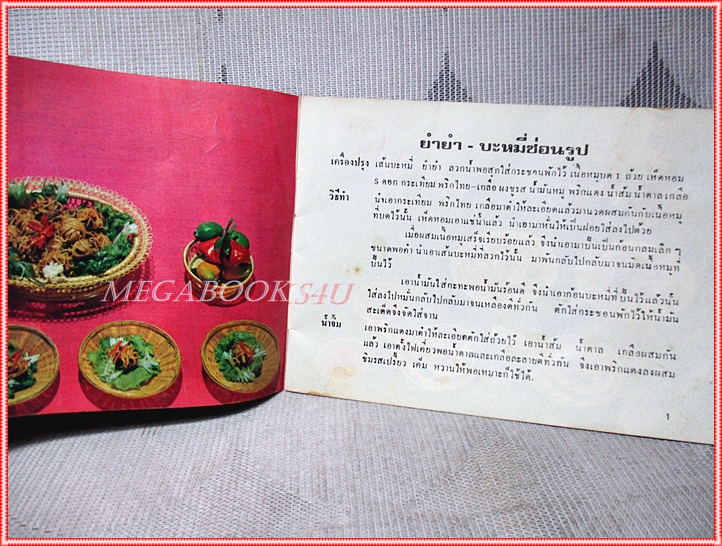 ยำยำ - บะหมี่ซ่อนรูป
เครื่องปรุง เส้นบะหมี่ ยำยำ ลวกน้ำพอสุกใส่กระชอนพักไว้ เนื้อหมูบด 1 ถ้วย เห็ดหอม
5 ดอก กระเทียม พริกไทย-เกลือ ผงชูรส น้ำมันหมู พริกแดง น้ำส้ม น้ำตาล เกลือ
วิธีทำ นำเอากระเทียม พริกไทย เกลือมาตำให้ละเอียดแล้วมานวดผสมกันกับเนื้อหมู
ที่บดไว้นั้น เห็ดหอมเอาแช่น้ำแล้ว นำเอามาหั่นให้เป็นฝอยใส่ลงไปด้วย
เมื่อผสมเนื้อหมูเสร็จเรียบร้อยแล้ว จึงนำเอามาปั้นเป็นก้อนกลมเล็ก ๆ
ขนาดพอคำ นำเอาเส้นบะหมี่ที่ลวกไว้นั้น มาพันกลับไปกลับมาจนมิดเนื้อหมูที่
ปั้นไว้
เอาน้ำมันใส่กะทะพอน้ำมันร้อนดี จึงนำเอาก้อนบะหมี่ที่ปั้นไว้แล้วนั้น
ใส่ลงไปหมั่นกลับไปกลับมาจนเหลืองดีทั่วกัน ตักใส่กระชอนพักไว้ให้น้ำมัน
สะเด็ดจึงจัดใส่จาน
น้ำจิ้ม เอาพริกแดงมาตำให้ละเอียดตักใส่ถ้วยไว้ เอาน้ำส้ม น้ำตาล เกลือผสมกัน
แล้ว เอาตั้งไฟเคี่ยวพอน้ำตาลและเกลือละลายดีทั่วกัน จึงเอาพริกแดงลงผสม
ชิมรสเปรี้ยว เค็ม หวานให้พอเหมาะก็ใช้ได้.
1
MEGABOOKS4U